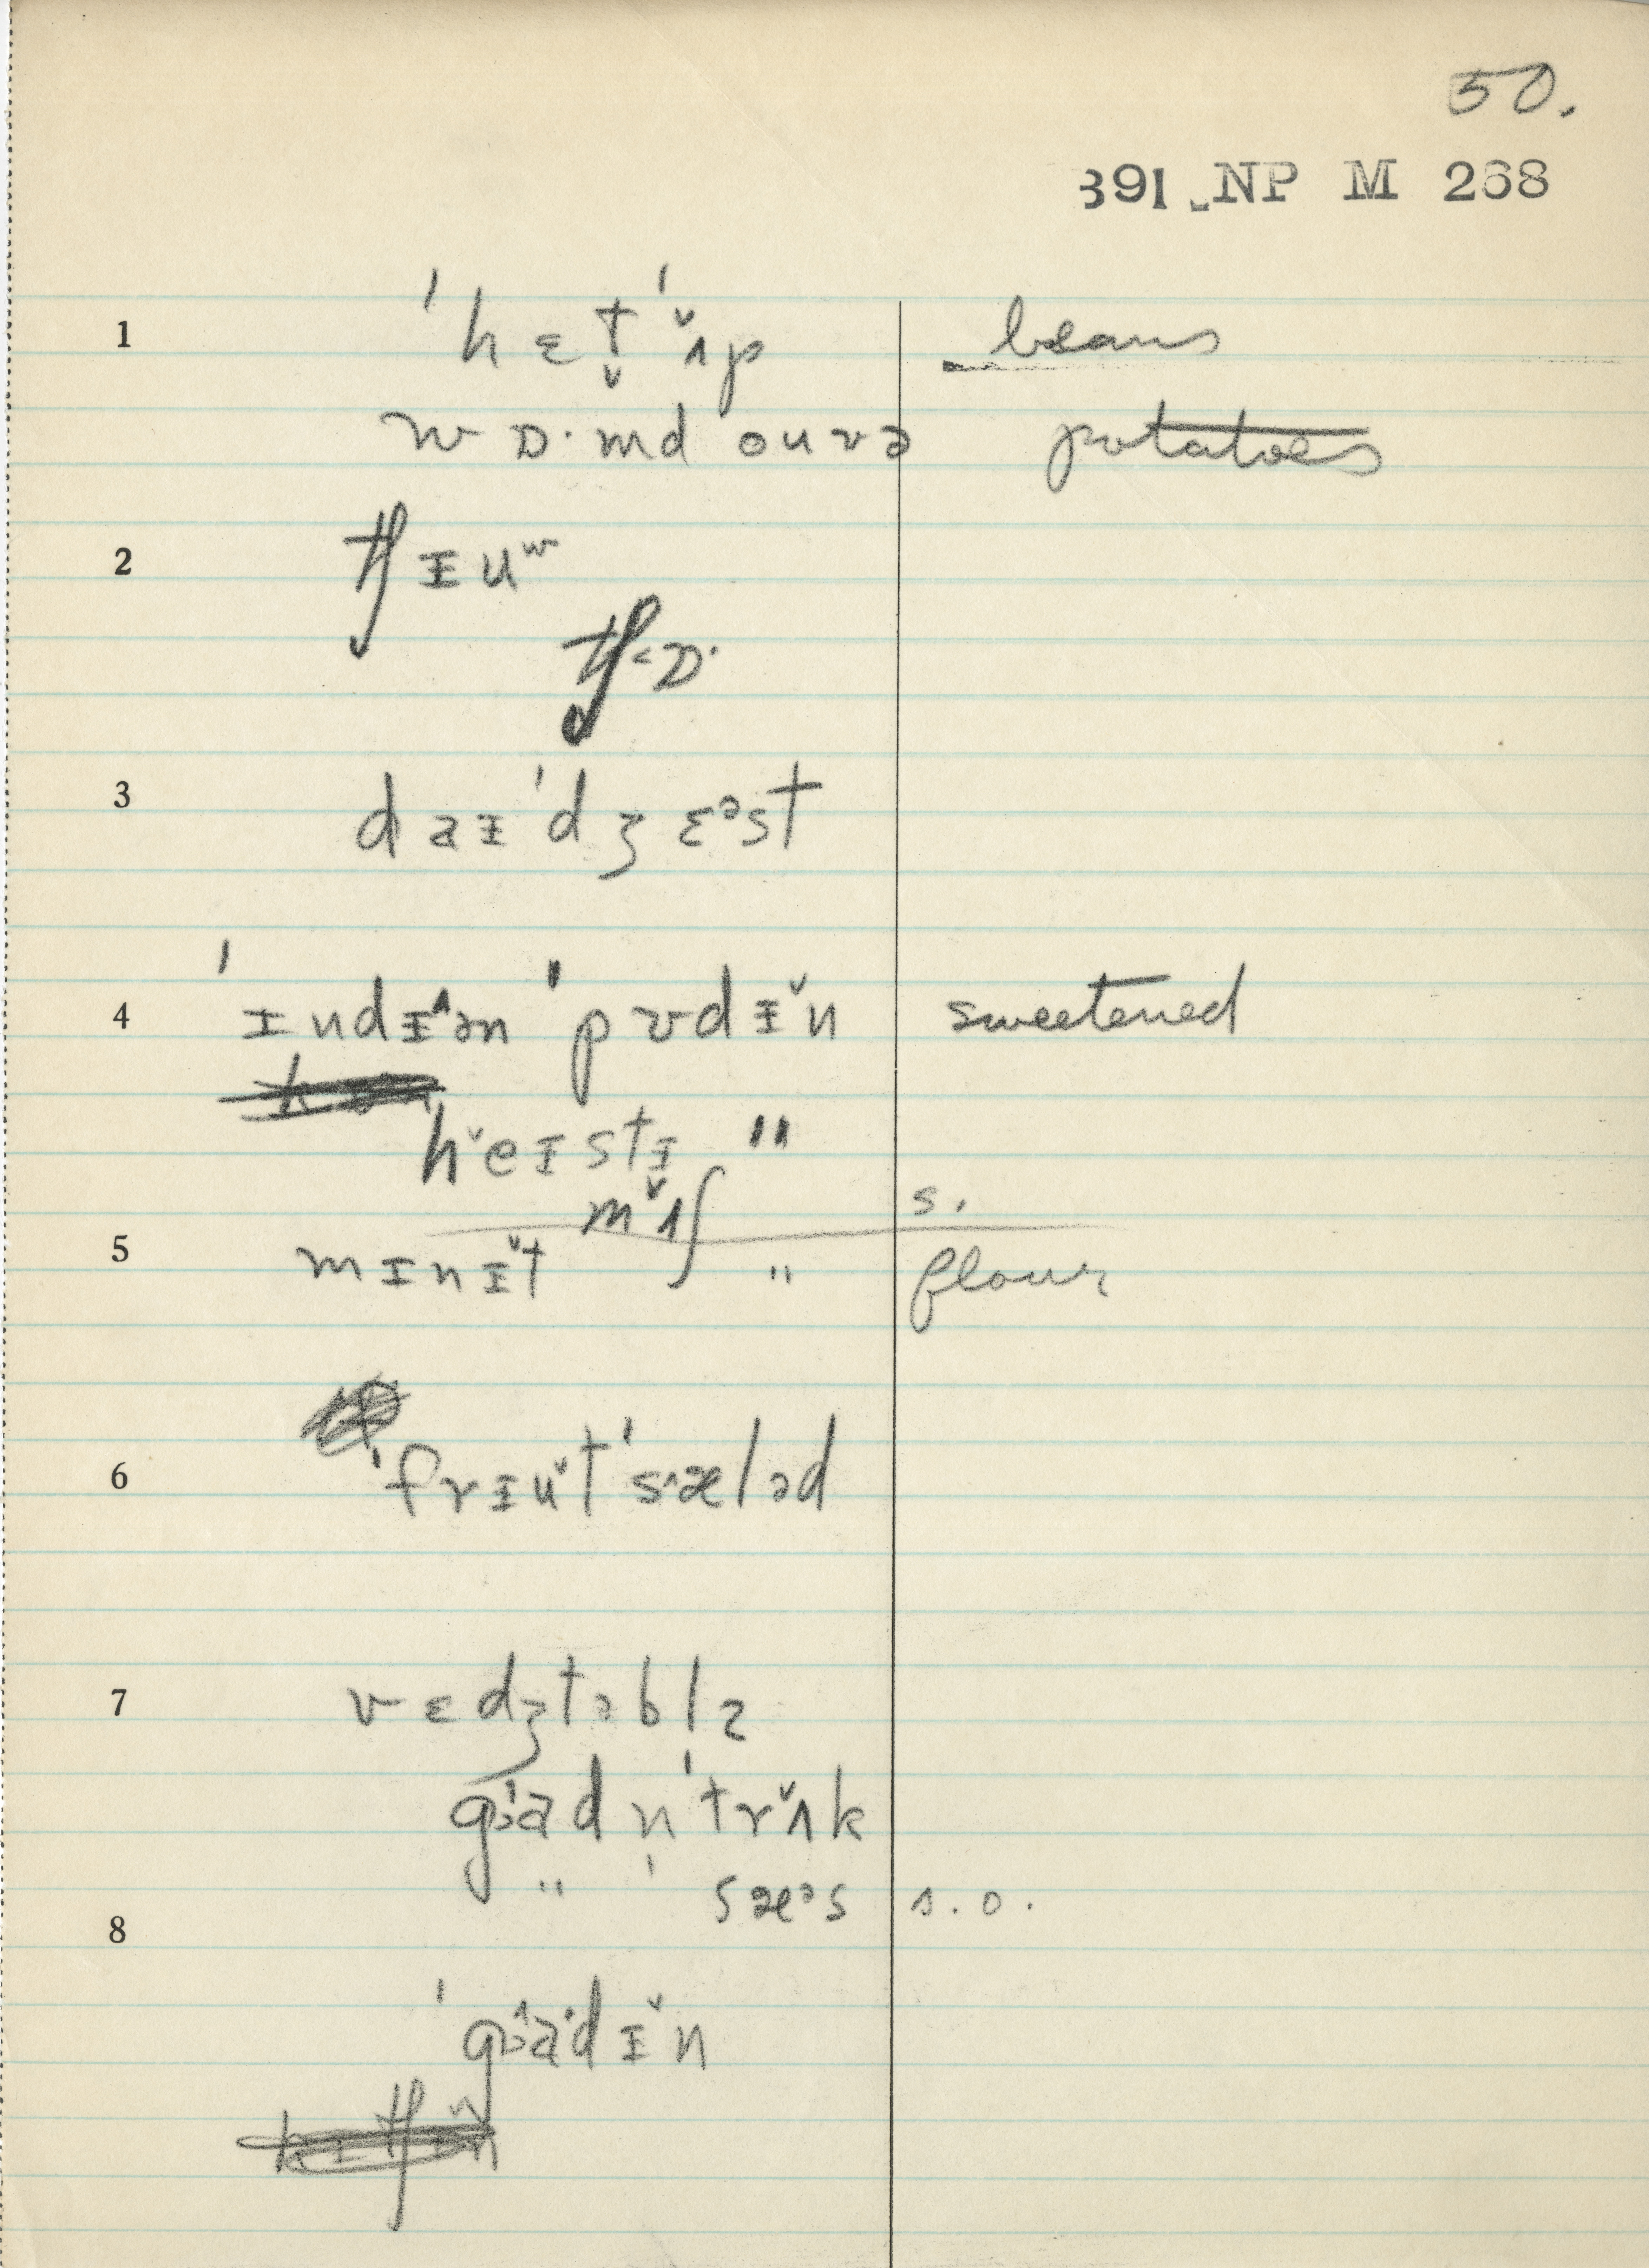 50.
391 NP M 268
1 ˈhɛt̬ ˈʌ̌p beans
wɒ·md ouvə potatoes
2 tʃɪuʷ
tʃ<ɒ·
3 daɪˈdʒɛᵊst
4 ˈɪndɪ^ən ˈpʊdɪ̌n sweetened
hˇeɪstɪ "
mʌ̌ʃ s.
5 mɪnɪ̌t " flour
6 ˈfrɪuˇt ˈs^æləd
7 vɛdʒtəblz
gɜad n ˈtrʌ̌k
" ˈ sæᵊs s.o.
8
ˈgɜ^a·dɪ̌n